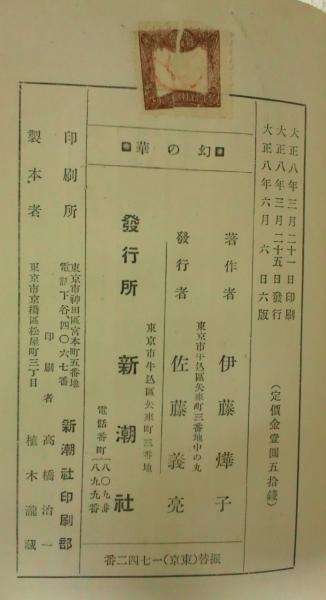 大正八年三月二十一日印刷
大正八年三月二十五日發行
大正八年六月六日六版
（定價金壹圓五拾錢）
幻の華
著作者 伊藤燁子
東京市牛込區矢來町三番地中の丸
發行者 佐藤義亮
東京市牛込區矢來町三番地
發行所 新潮社
電話番町 八〇九番
八九九番
振替（東京）一七四二番
東京市神田區宮本町五番地
電話下谷、四〇六七番
印刷所 新潮社印刷部
印刷者 高橋治一
東京市京橋區松屋町三丁目
製本者 植木瀧藏